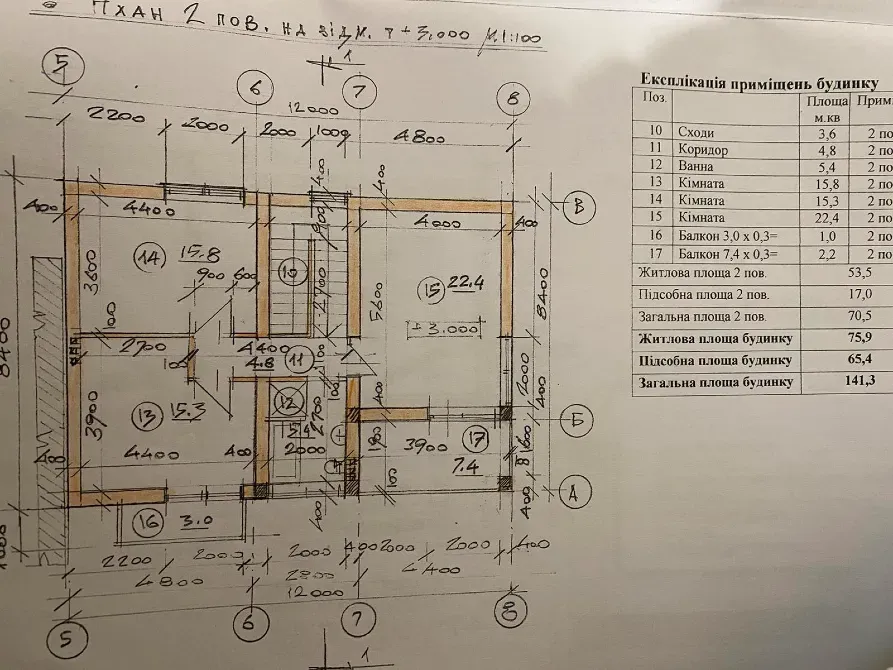 ПЛАН 2 пов. на відм. + 3.000 М 1:100
1
5 6 7 8
12000
2200 2000 2000 1000 4800
400 400
400 4400 900 4000 400
В
14 15.8 10
3600 900 600 2700 15 22.4
5600 8400
± 3.000
100
2700 4400
4.8 11 1100
8400 2000
100
12 400 400
13 15.3
3900 15.4 2700 Б
1800 3900 17 1600
400 4400 400 2000 7.4
100
А
400 400
16 3.0
1000
2200 2000 2000 400 2000 2000 400
4800 2800 4400
12000
5 6 7 8
1
Експлікація приміщень будинку
Поз. Площа м.кв Прим.
10 Сходи 3,6 2 по
11 Коридор 4,8 2 по
12 Ванна 5,4 2 по
13 Кімната 15,8 2 по
14 Кімната 15,3 2 по
15 Кімната 22,4 2 по
16 Балкон 3,0 х 0,3= 1,0 2 по
17 Балкон 7,4 х 0,3= 2,2 2 по
Житлова площа 2 пов. 53,5
Підсобна площа 2 пов. 17,0
Загальна площа 2 пов. 70,5
Житлова площа будинку 75,9
Підсобна площа будинку 65,4
Загальна площа будинку 141,3